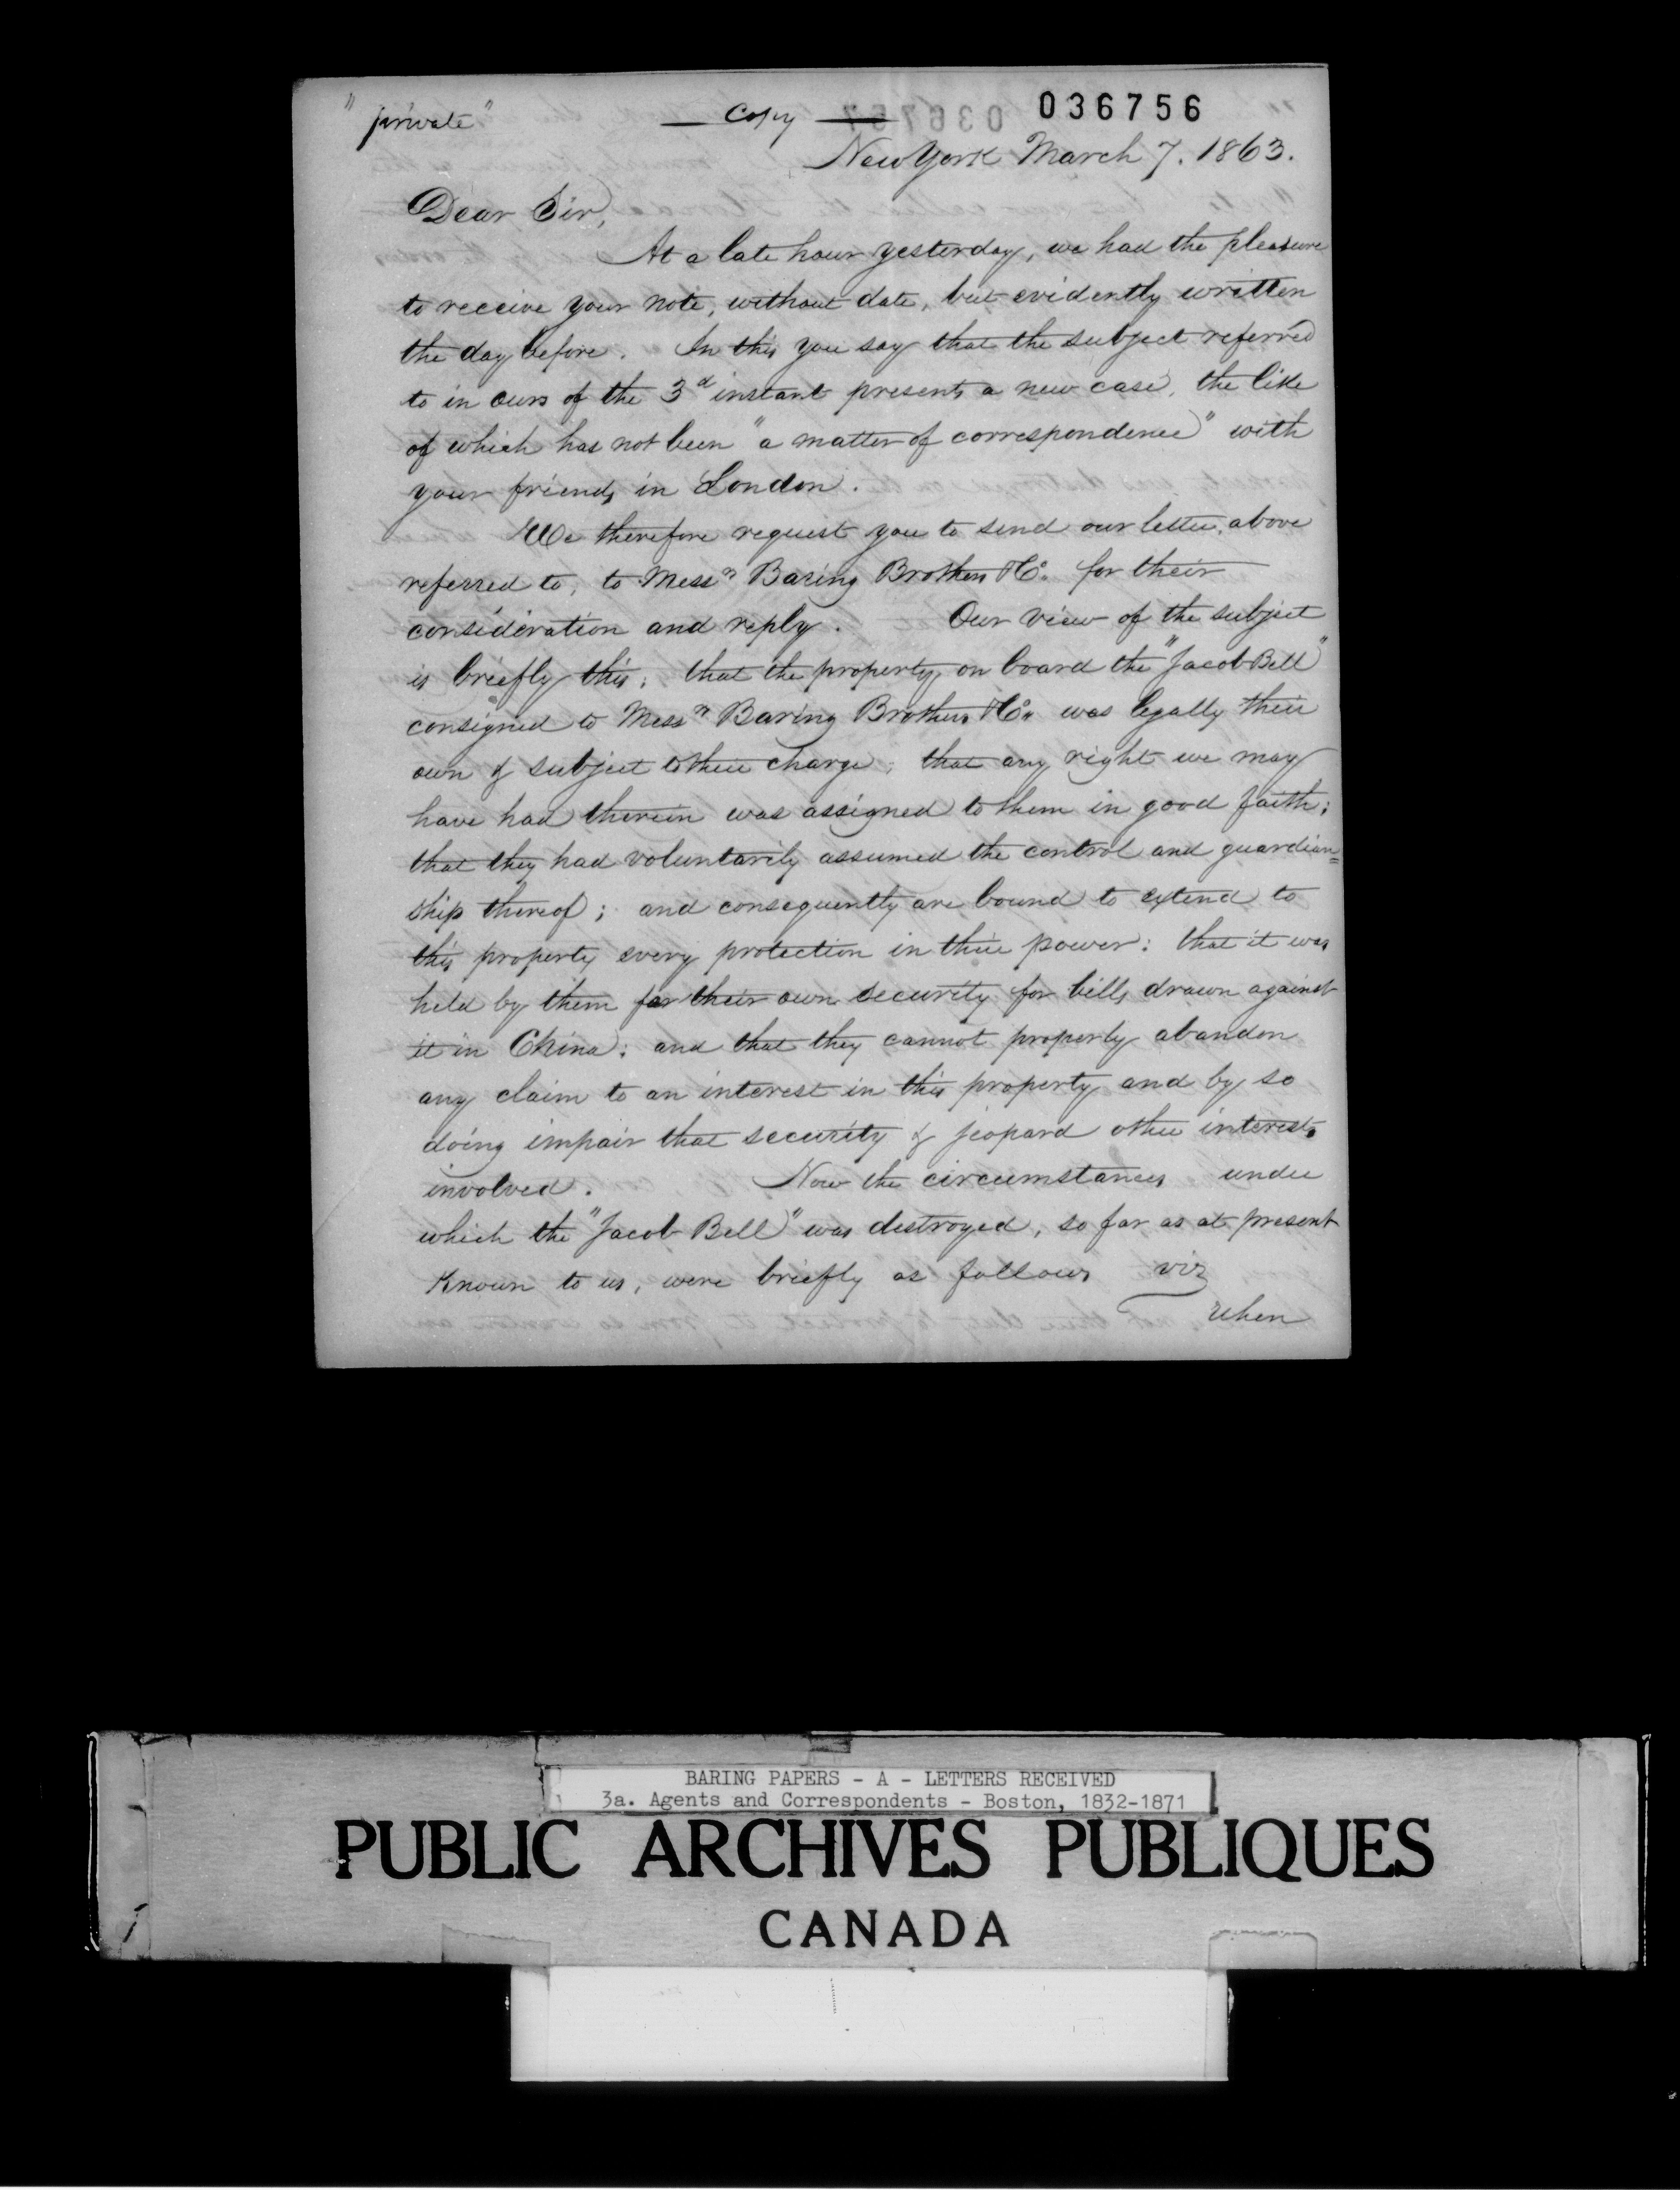 "private"
Copy
036756
New York March 7. 1863.
Dear Sir,
At a late hour yesterday, we had the pleasure
to receive your note, without date, but evidently written
the day before. In this you say that the subject referred
to in ours of the 3d instant presents a new case, the like
of which has not been "a matter of correspondence" with
your friends in London.
We therefore request you to send our letter, above
referred to, to Messrs Baring Brothers & Co. for their
consideration and reply. Our view of the subject
is briefly this; that the property on board the "Jacob Bell"
consigned to Messrs Baring Brothers & Co. was legally their
own & subject to their charge; that any right we may
have had therein was assigned to them in good faith;
that they had voluntarily assumed the control and guardian=
ship thereof; and consequently are bound to extend to
this property every protection in their power: that it was
held by them for their own security for bills drawn against
it in China: and that they cannot properly abandon
any claim to an interest in this property and by so
doing impair that security & jeopard other interests
involved. Now the circumstances under
which the "Jacob Bell" was destroyed, so far as at present
Known to us, were briefly as follows viz
When
BARING PAPERS - A - LETTERS RECEIVED
3a. Agents and Correspondents - Boston, 1832-1871
PUBLIC ARCHIVES PUBLIQUES
CANADA